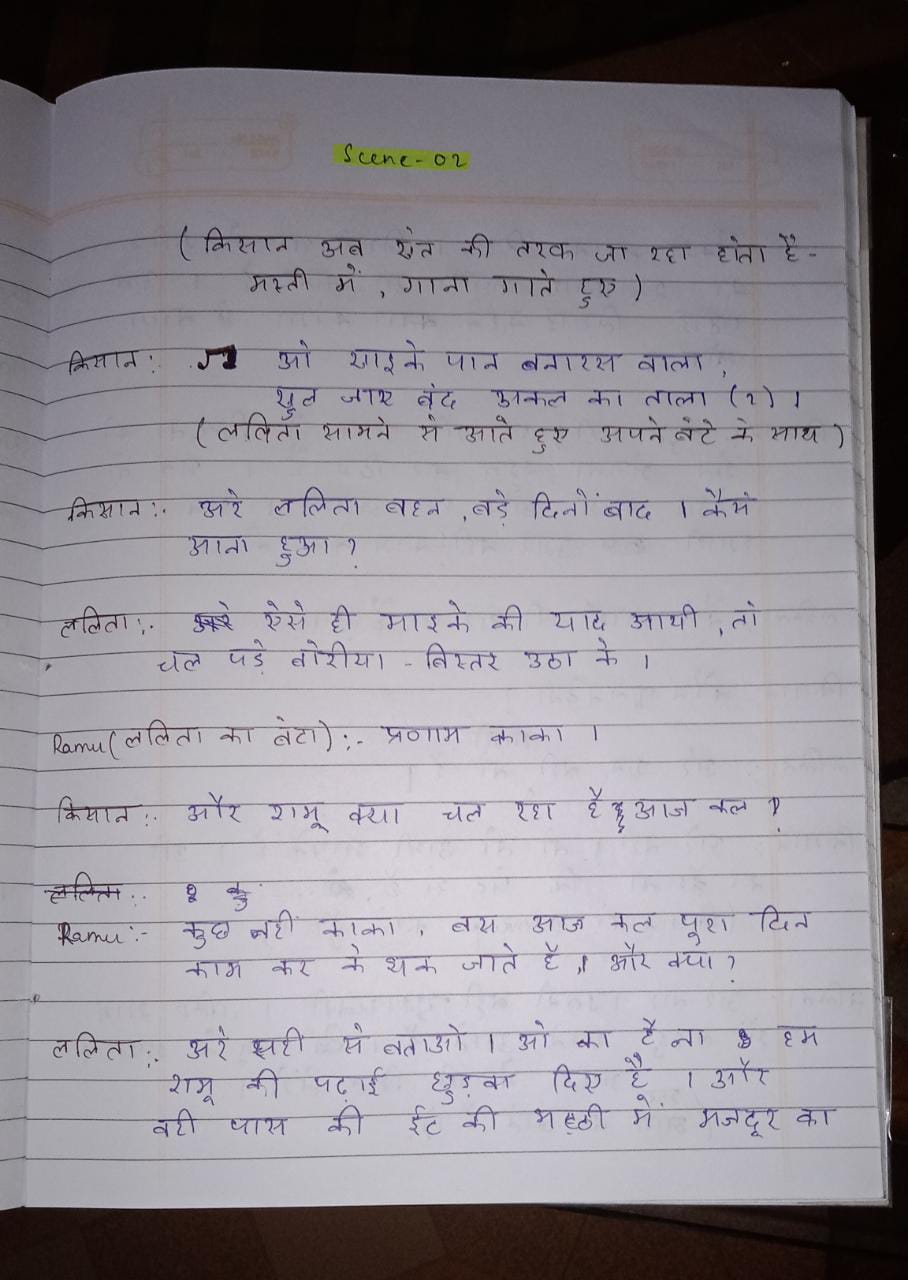 Scene-02
(किसान अब खेत की तरफ जा रहा होता है-
मस्ती में, गाना गाते हुए)
किसान: ओ खाइके पान बनारस वाला,
खुल जाए बंद अकल का ताला (२)।
(ललिता सामने से आते हुए अपने बेटे के साथ)
किसान:- अरे ललिता बहन, बड़े दिनों बाद । कैसे
आना हुआ?
ललिता:- ऐसे ही माइके की याद आयी, तो
चल पड़े बोरीया-बिस्तर उठा के ।
Ramu(ललिता का बेटा):- प्रणाम काका ।
किसान:- और रामू क्या चल रहा है आज कल ?
Ramu:- कुछ नहीं काका, बस आज कल पूरा दिन
काम कर के थक जाते है, और क्या?
ललिता:- अरे सही से बताओ। ओ का है ना हम
रामू की पढ़ाई छुड़वा दिए है । और
वही पास की ईट की भट्ठी में मजदूर का